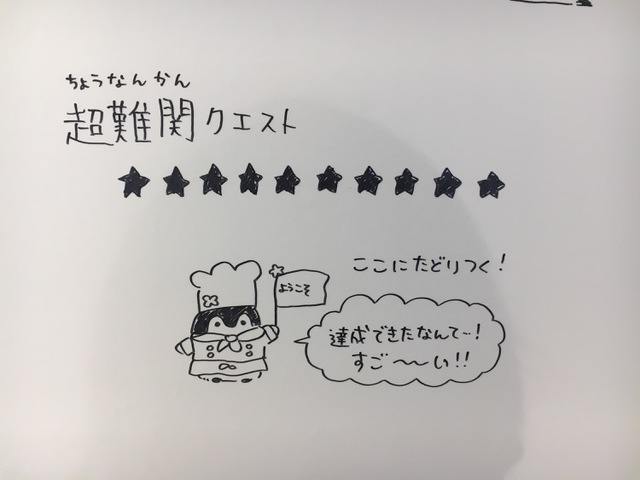 ちょうなんかん
超難関クエスト
★★★★★★★★★★
ここにたどりつく！
ようこそ
達成できたなんて…！
すご〜〜い!!